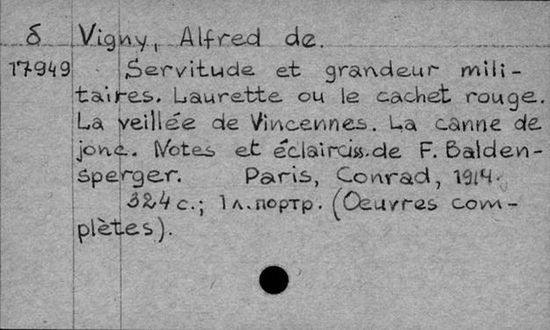 δ Vigny, Alfred de.
17949 Servitude et grandeur mili-
taires. Laurette ou le cachet rouge.
La veillée de Vincennes. La canne de
jonc. Notes et éclairciss. de F. Balden-
sperger. Paris, Conrad, 1914.
324 с.; 1 л. портр. (Oeuvres com-
plètes).